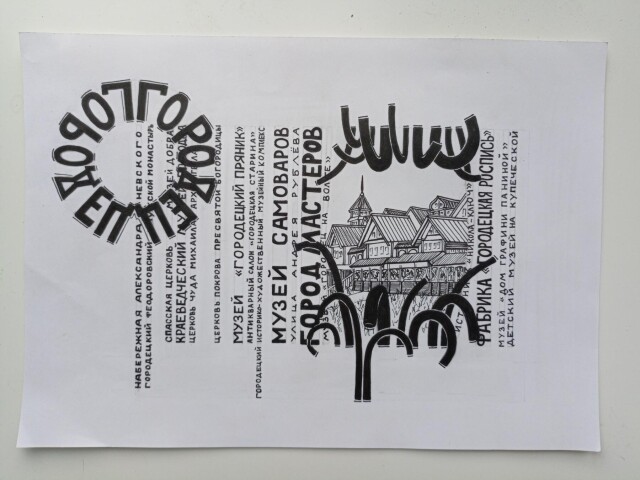 ГОРОДЕЦ
НАБЕРЕЖНАЯ АЛЕКСАНДРА НЕВСКОГО
ГОРОДЕЦКИЙ ФЕОДОРОВСКИЙ МОНАСТЫРЬ
СПАССКАЯ ЦЕРКОВЬ МУЗЕЙ ДОБРА
КРАЕВЕДЧЕСКИЙ
ЦЕРКОВЬ ЧУДА МИХАИЛА
ЦЕРКОВЬ ПОКРОВА ПРЕСВЯТОЙ БОГОРОДИЦЫ
МУЗЕЙ «ГОРОДЕЦКИЙ ПРЯНИК»
АНТИКВАРНЫЙ САЛОН «ГОРОДЕЦКАЯ СТАРИНА»
ГОРОДЕЦКИЙ ИСТОРИКО-ХУДОЖЕСТВЕННЫЙ МУЗЕЙНЫЙ КОМПЛЕКС
МУЗЕЙ САМОВАРОВ
УЛИЦА АНДРЕЯ РУБЛЁВА
ГОРОД МАСТЕРОВ
НА ВОЛГЕ»
«НИКОЛА-КЛЮЧ»
ФАБРИКА «ГОРОДЕЦКАЯ РОСПИСЬ»
МУЗЕЙ «ДОМ ГРАФИНИ ПАНИНОЙ»
ДЕТСКИЙ МУЗЕЙ НА КУПЕЧЕСКОЙ